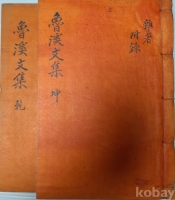 魯溪文集 乾
魯溪文集 坤
雜著
附錄
kobay